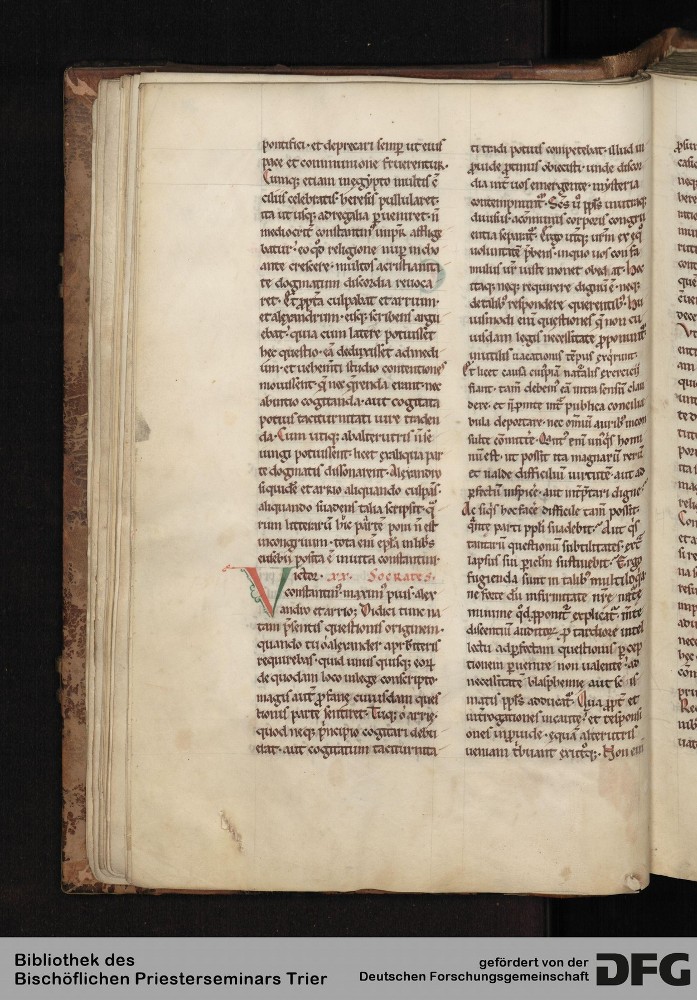 pontifici · et deprecari semp ut eius
pace et communione fruerentur.
Cumq; etiam in egypto multis c̄
ciliis celebratis heresis pullularet·
ita ut usq; ad regalia puenīret· n̄
mediocrit constantin' impr̄ afflige
batur· eo qd̄ religione nup incho
ante crescere· multos a cristianita
te dogmatum discordia reuoca
ret. Et ppt̄a culpabat et arrium·
et alexandrum· eisq; scribens argu
ebat· quia cum latere potuisset
hec questio· ea deduxisset ad medi
um· et uehementi studio contentiones
mouissent· q̄ nec q̄renda erant· nec
ab initio cogitanda· aut cogitata
potius taciturnitati uire traden
da. Cum utiq; ab alterutris n̄ se
iungi potuissent· licet ex aliqua par
te dogmatis dissonarent. Alexandro
siquidē et arrio aliquando culpās·
aliquando suadens talia scripsit· q̄
rum litterarū hic partē poni n̄ est
incongruum· tota em̄ epl̄a in libris
eusebii posita ē in uita constantini·
Victor. xx. Socrates.
constantin' maxim' pius· alex
andro et arrio; Uidici tunc na
tam psentis questionis originem·
quando tu o alexander a prbiteris
requirebas· quid unus quisq; eor̄
de quodam loco in lege conscripto·
magis aut p fane cuiusdam ques
tionis parte sentiret· Tuq; o arrie·
quod neq; pncipio cogitari debu
erat· aut cogitatum taciturnita
ti tradi potius competebat· illud in
puide ptinus obiecisti· unde discor
dia int uos emergente· mysteria
contempnunt̄. Scs̄ ū ppls in utrūq;
diuisus· a cōmunis corporis congru
entia separat̄. Ergo utq; urm̄ ex eq̄
uoluntatē pbens· in quo uos con fa
mulus ur̄ iuste monet obediat. Hoc
itaq; neq; requirere dignū ē· neq;
de talib; respondere querentib; Hu
iusmodi em̄ questiones q̄ non cu
iusdam legis necessitate pponunt̄·
inutilis uacationis tēpus exqrunt·
Et licet causa cuipiā naturalis exercicii
fiant· tam̄ debem' ea intra sensū clau
dere· et n̄ pmte int̄ publica concilia
bula deportare· nec omiū aurib; incon
sulte cōmittere. Quant' em̄ unqsq; homi
nū est· ut possit ita magnarū rerū
et ualde difficiliū uirtutē· aut ad
pfectū inspice· aut int̄ptari digne·
Ac siqs̄ hoc face difficile tam̄ possit·
qnte parti ppli suadebit· Aut qs̄
tantarū questionū subtilitates· ext̄
lapsus sui piclm̄ sustinebit· Ergo
fugienda sunt in talib; multiloq̄a
ne forte dū infirmitate nr̄e nat̄e
minime qd pponit̄ explicat̄· int̄e
discentiū auditor̄· p tardiore intel
lectu ad pfectam questionis p cep
tionem puenire non ualente· ad
necessitatē blasphemie aut
matis ppls adducat̄. Quappt̄ et
int̄rogationes incaute· et responsi
ones in puide· ex qua alterutris
ueniam tbuant exutq̄;. Non em̄
Bibliothek des
Bischöflichen Priesterseminars Trier
gefördert von der
Deutschen Forschungsgemeinschaft
DFG